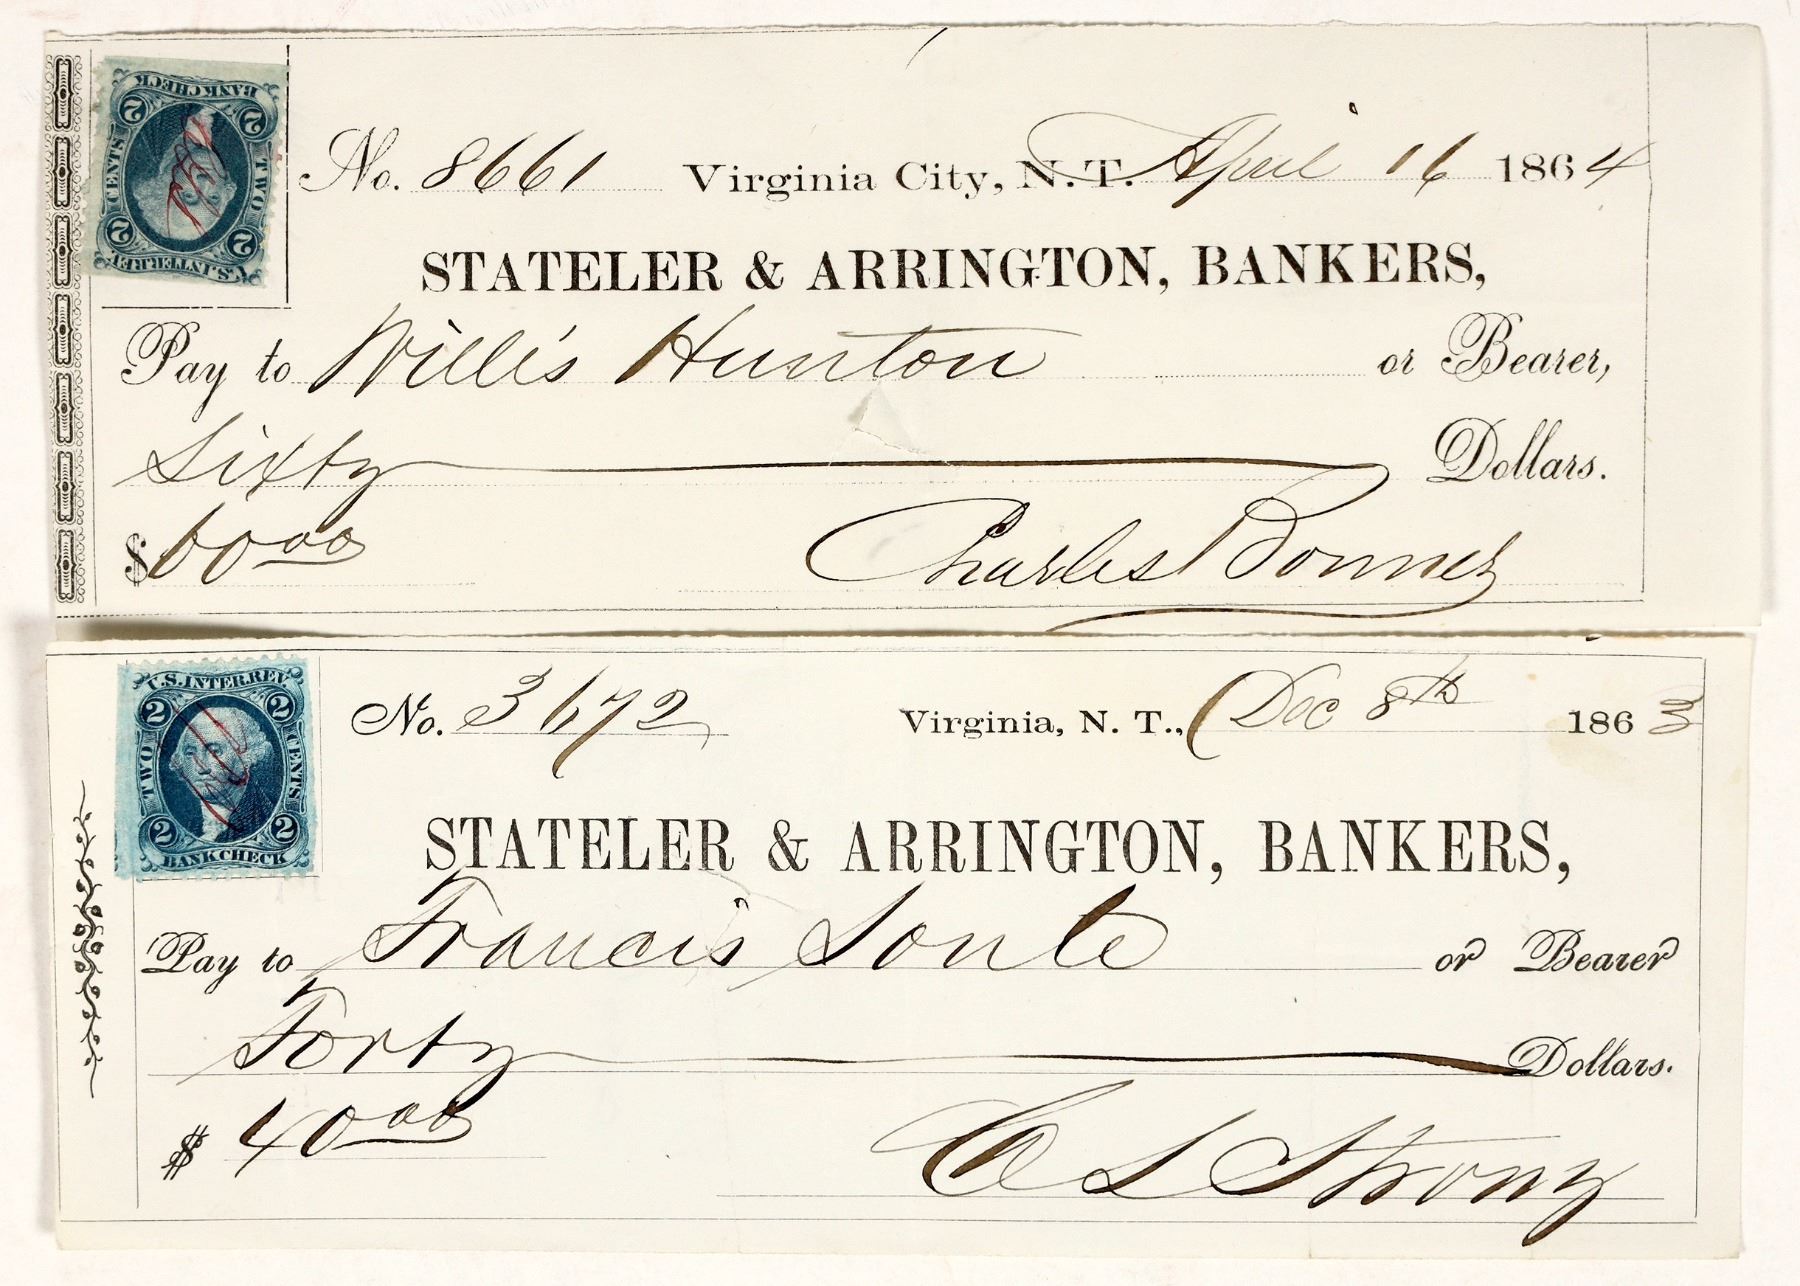 BANK CHECK
2 2
TWO CENTS
2 2
U.S. INTER. REV.
No. 8661 Virginia City, N. T. April 16 1864
STATELER & ARRINGTON, BANKERS,
Pay to Willis Hunton or Bearer,
Sixty Dollars.
$60 00
Charles Bonner
U.S. INTER. REV.
2 2
TWO CENTS
2 2
BANK CHECK
No. 3672 Virginia, N. T., Dec 8th 1863
STATELER & ARRINGTON, BANKERS,
Pay to Francis Soule or Bearer
Forty Dollars.
$ 40 00
C L Strong